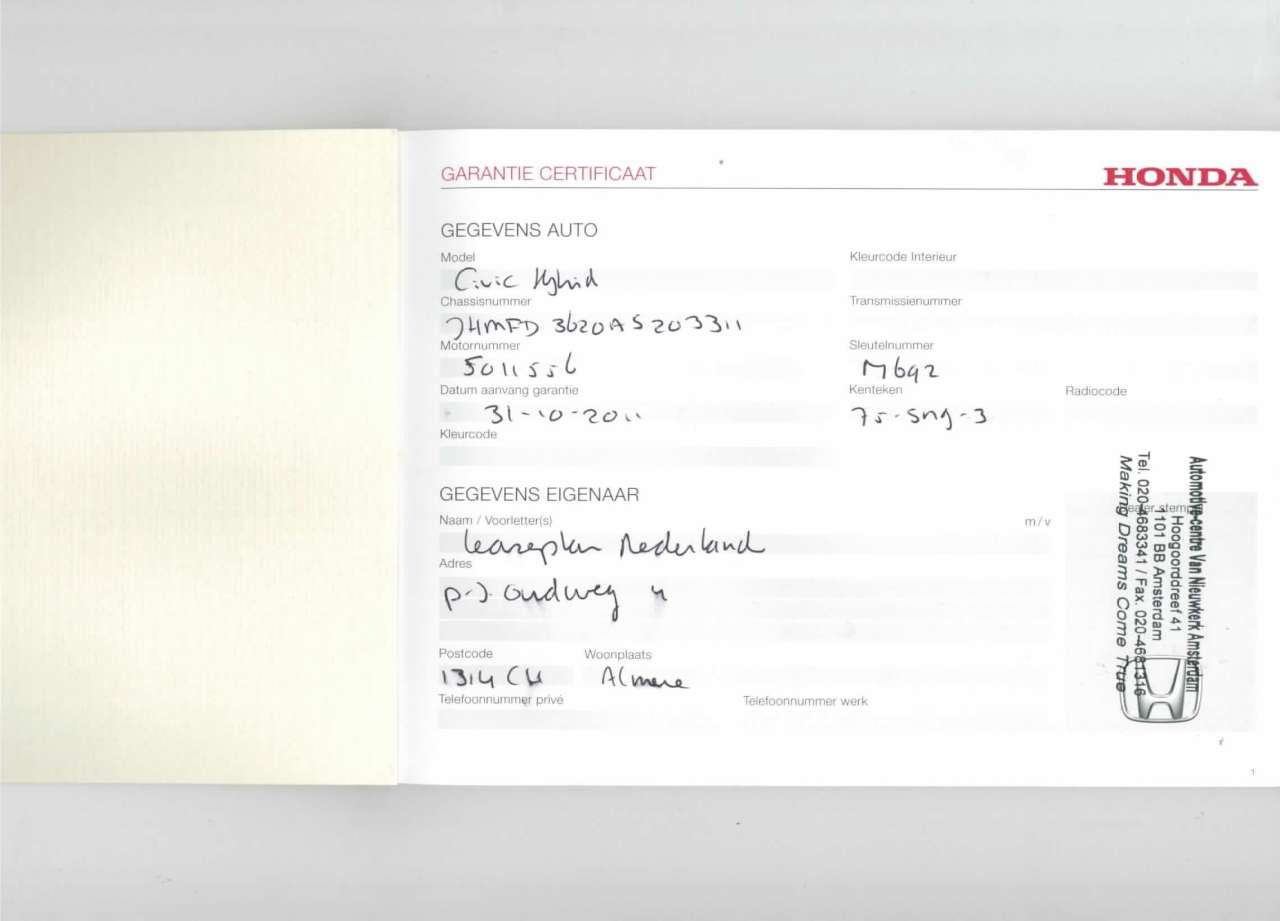 GARANTIE CERTIFICAAT
HONDA
GEGEVENS AUTO
Model
Kleurcode Interieur
Civic Hybrid
Chassisnummer
Transmissienummer
JHMFD3620AS203311
Motornummer
Sleutelnummer
5011556
M692
Datum aanvang garantie
Kenteken
Radiocode
31-10-2011
75-SNG-3
Kleurcode
GEGEVENS EIGENAAR
Naam / Voorletter(s)
m / v
Dealer stempel
Leaseplan Nederland
Adres
P.J. Oudweg
Postcode
Woonplaats
1314 CH
Almere
Telefoonnummer privé
Telefoonnummer werk
Automotive-centre Van Nieuwkerk Amsterdam
Hoogoorddreef 41
1101 BB Amsterdam
Tel. 020-4683341 / Fax. 020-4681316
Making Dreams Come True
1